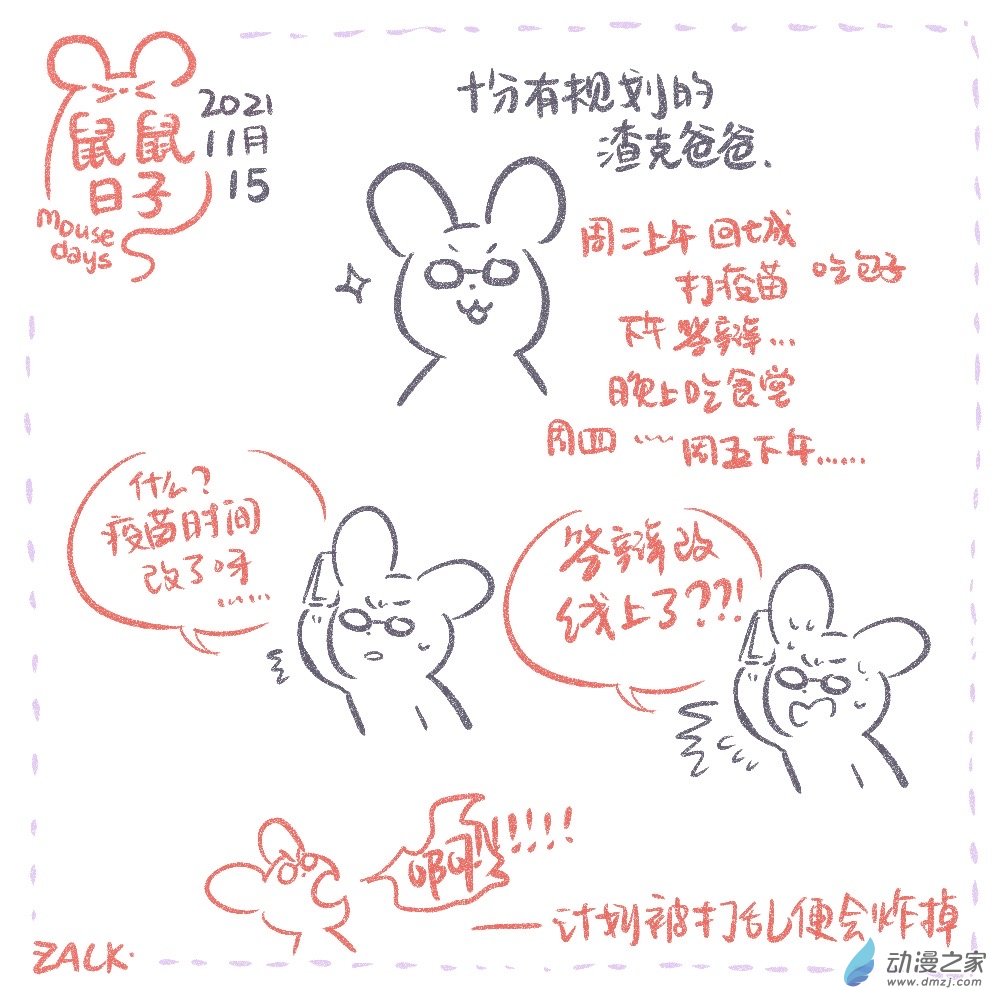 鼠鼠
日子
mouse
days
2021
11月
15
十分有规划的
渣克爸爸.
周二上午 回城
打疫苗 吃包子
下午 答辩...
晚上吃食堂
周四 ······ 周五下午......
什么?
疫苗时间
改了呀
......
答辩改
线上了???!
啊!!!!!!
——计划被打乱便会炸掉
ZALK.
动漫之家
www.dmzj.com